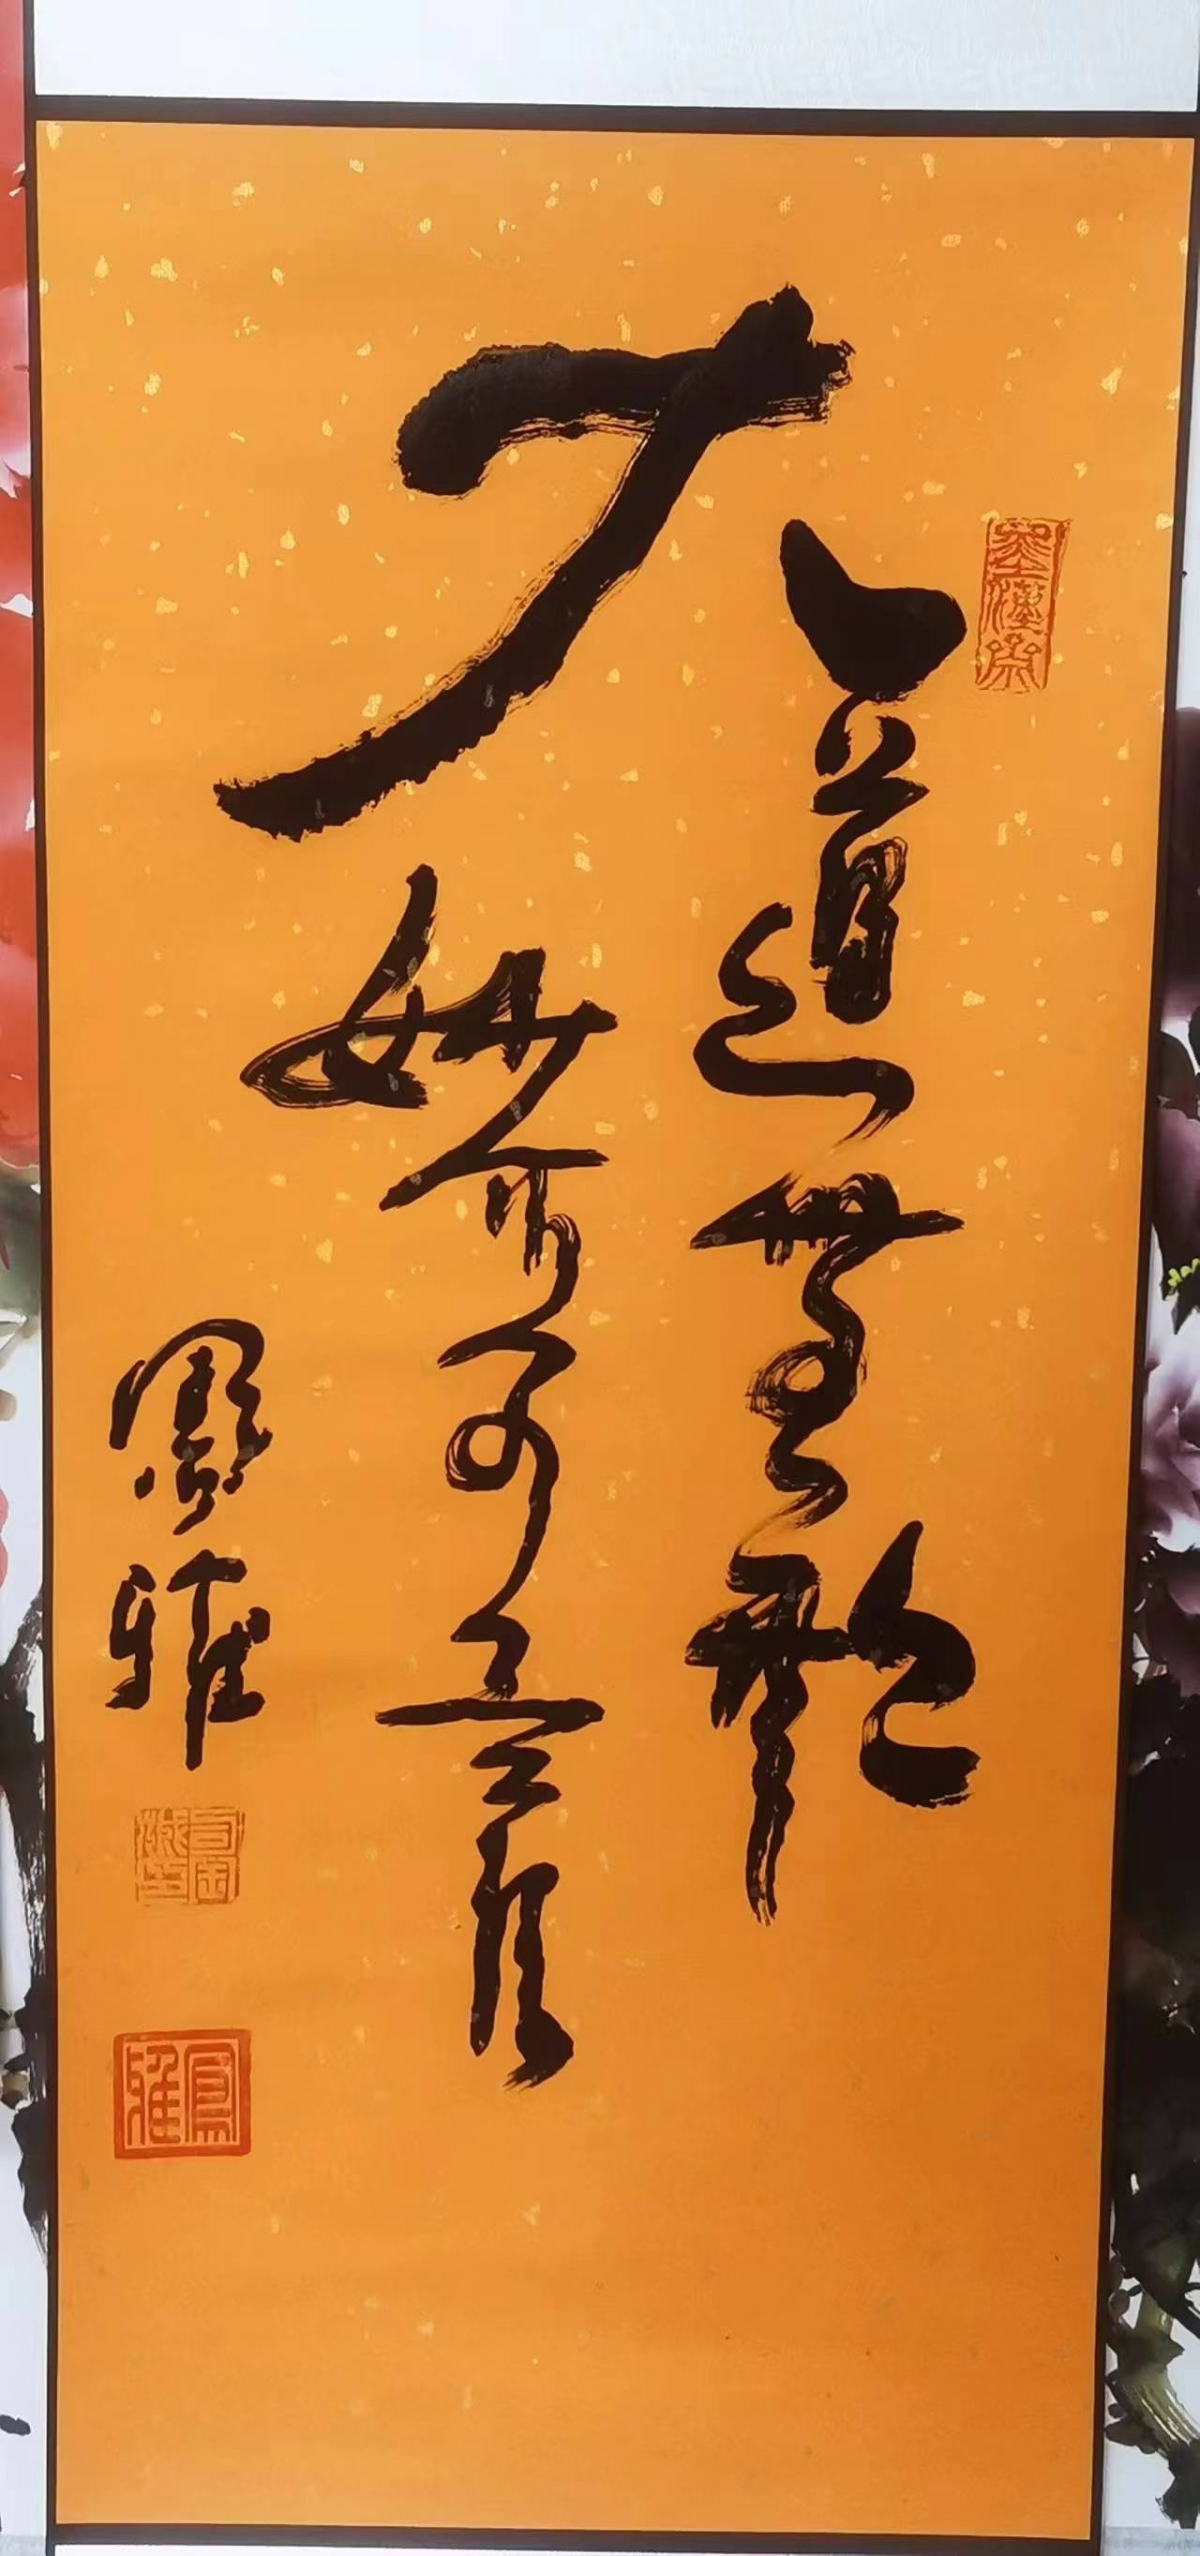 大道無形
妙不可言
鳳雅
鳳雅